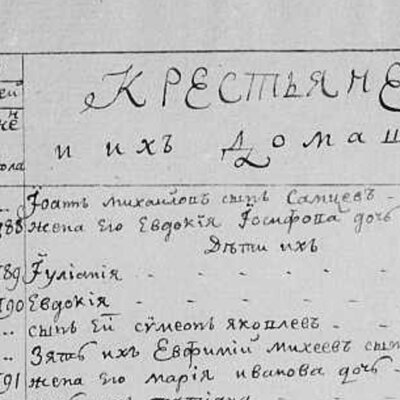 Крестьяне
и ихъ домаш
Іоаннъ Михайловъ сынъ Самцевъ
188 жена его Евдокія Іосифова дочь
Дѣти ихъ
189 Іуліанія
190 Евдокія
сынъ ей Сѵмеонъ Яковлевъ
Зять ихъ Евфимій Михеевъ сын
191 жена его Марія Иванова дочь